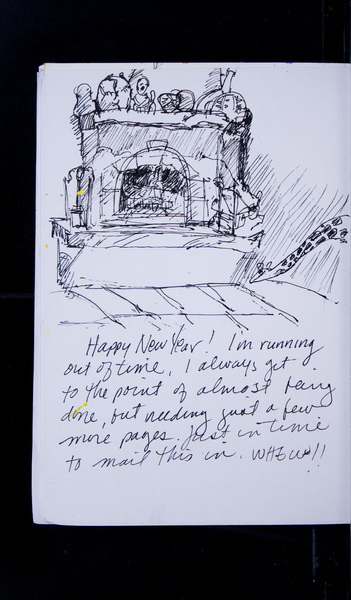 Happy New Year! I'm running
out of time, I always get
to the point of almost being
done, but needing just a few
more pages. Just in time
to mail this in. WHEW!!